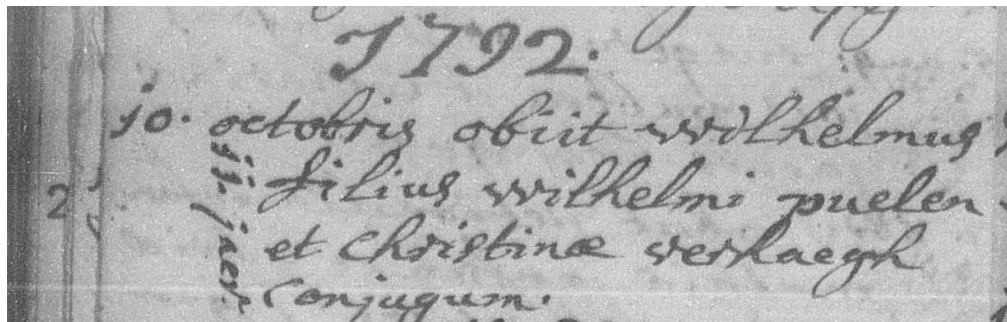 1792.
10. octobris obiit wilhelmus
filius wilhelmi puelen
et christinæ verhaegh
conjugum.
2